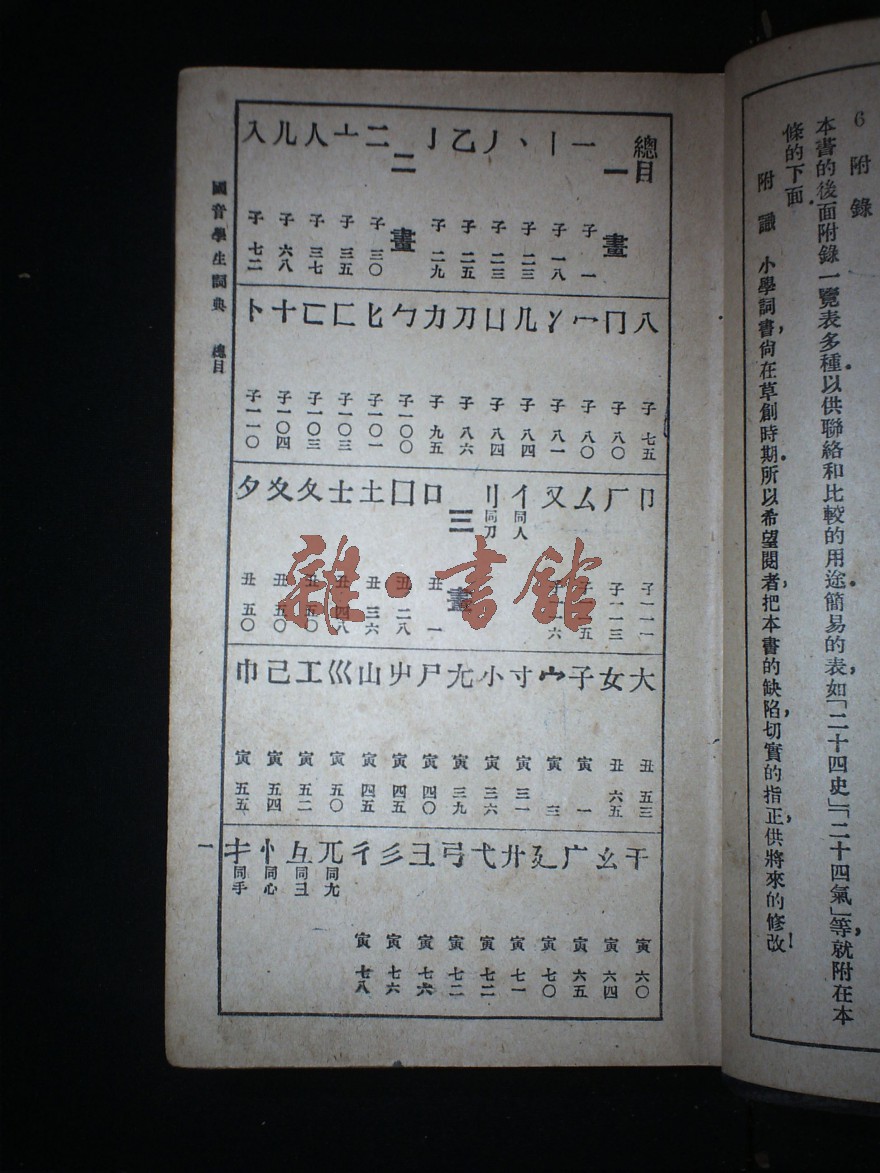 6 附錄
本書的後面附錄一覽表多種,以供聯絡和比較的用途.簡易的表,如「二十四史」「二十四氣」等,就附在本
條的下面.
附識 小學詞書,尚在草創時期.所以希望閱者,把本書的缺陷,切實的指正,供將來的修改!
總目
一畫
一 子 一
丨 子 一八
丶 子 二三
丿 子 二三
乙 子 二五
亅 子 二九
二畫
二 子 三〇
亠 子 三五
人 子 三七
儿 子 六八
入 子 七二
八 子 七五
冂 子 八〇
冖 子 八〇
冫 子 八一
几 子 八四
凵 子 八四
刀 子 八六
力 子 九五
勹 子一〇〇
匕 子一〇一
匚 子一〇三
匸 子一〇三
十 子一〇四
卜 子一一〇
卩 子一一一
厂 子一一三
厶
又
亻同人
刂同刀
三畫
口 丑 一
囗 丑 二八
土 丑 三六
士 丑 四八
夂 丑 五〇
夊 丑 五〇
夕 丑 五〇
大 丑 五三
女 丑 六五
子 寅 一
宀 寅 三
寸 寅 三一
小 寅 三六
尢 寅 三九
尸 寅 四〇
屮 寅 四五
山 寅 四五
巛 寅 五〇
工 寅 五二
己 寅 五四
巾 寅 五五
干 寅 六〇
幺 寅 六四
广 寅 六五
廴 寅 七〇
廾 寅 七一
弋 寅 七二
弓 寅 七二
彐 寅 七六
彡 寅 七六
彳 寅 七八
兀同尢
彑同彐
忄同心
扌同手
國音學生詞典 總目
一
雜·書館